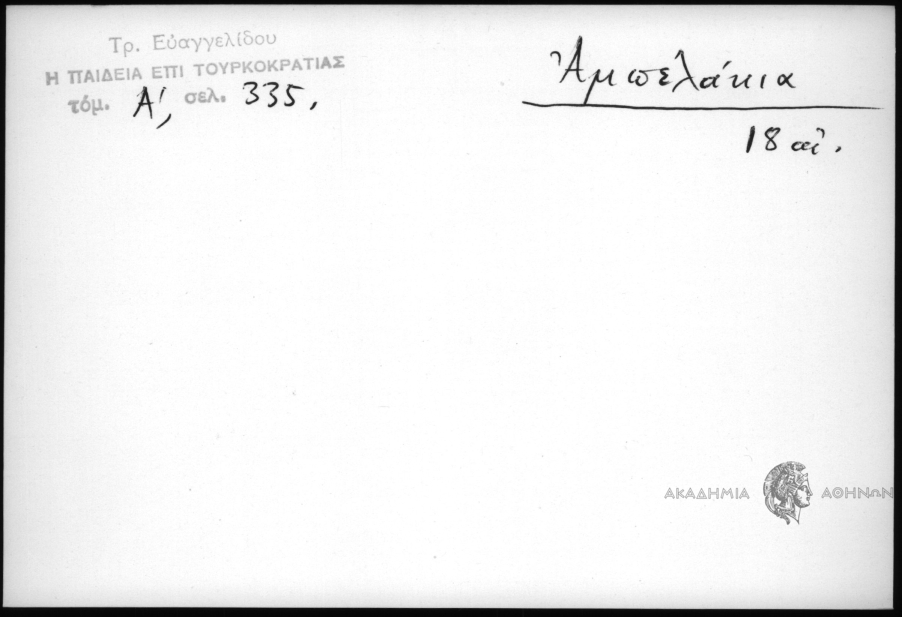 Τρ. Εὐαγγελίδου
Η ΠΑΙΔΕΙΑ ΕΠΙ ΤΟΥΡΚΟΚΡΑΤΙΑΣ
τόμ. Α΄, σελ. 335.
Ἀμπελάκια
18 αἰ.
ΑΚΑΔΗΜΙΑ ΑΘΗΝΩΝ